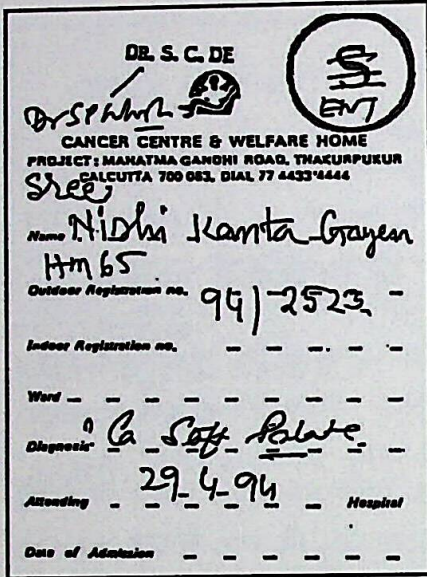 DR. S. C. DE
S
ENT
Dr SP
CANCER CENTRE & WELFARE HOME
PROJECT: MAHATMA GANDHI ROAD, THAKURPUKUR
CALCUTTA 700 063, DIAL 77 4433*4444
Sree
Name Nidhi Kanta Gayen
Hm 65
Outdoor Registration no. 94/2523
Indoor Registration no.
Ward
Diagnosis Ca Soft Palate
29-4-94
Attending Hospital
Date of Admission